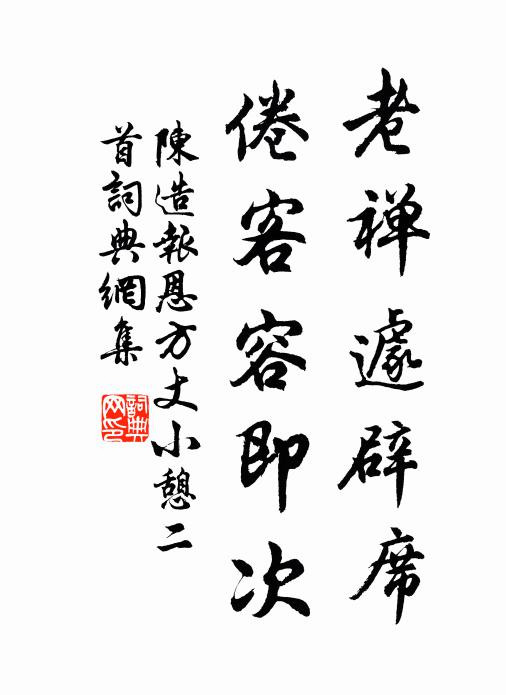 老禅遽辟席
倦客容即次
陳造報恩方丈小憩二
首詞典網集
詞典网印